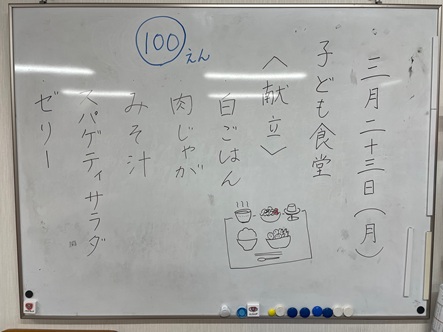 三月二十三日(月)
子ども食堂
〈献立〉
白ごはん
肉じゃが
みそ汁
スパゲティサラダ
ゼリー
100えん